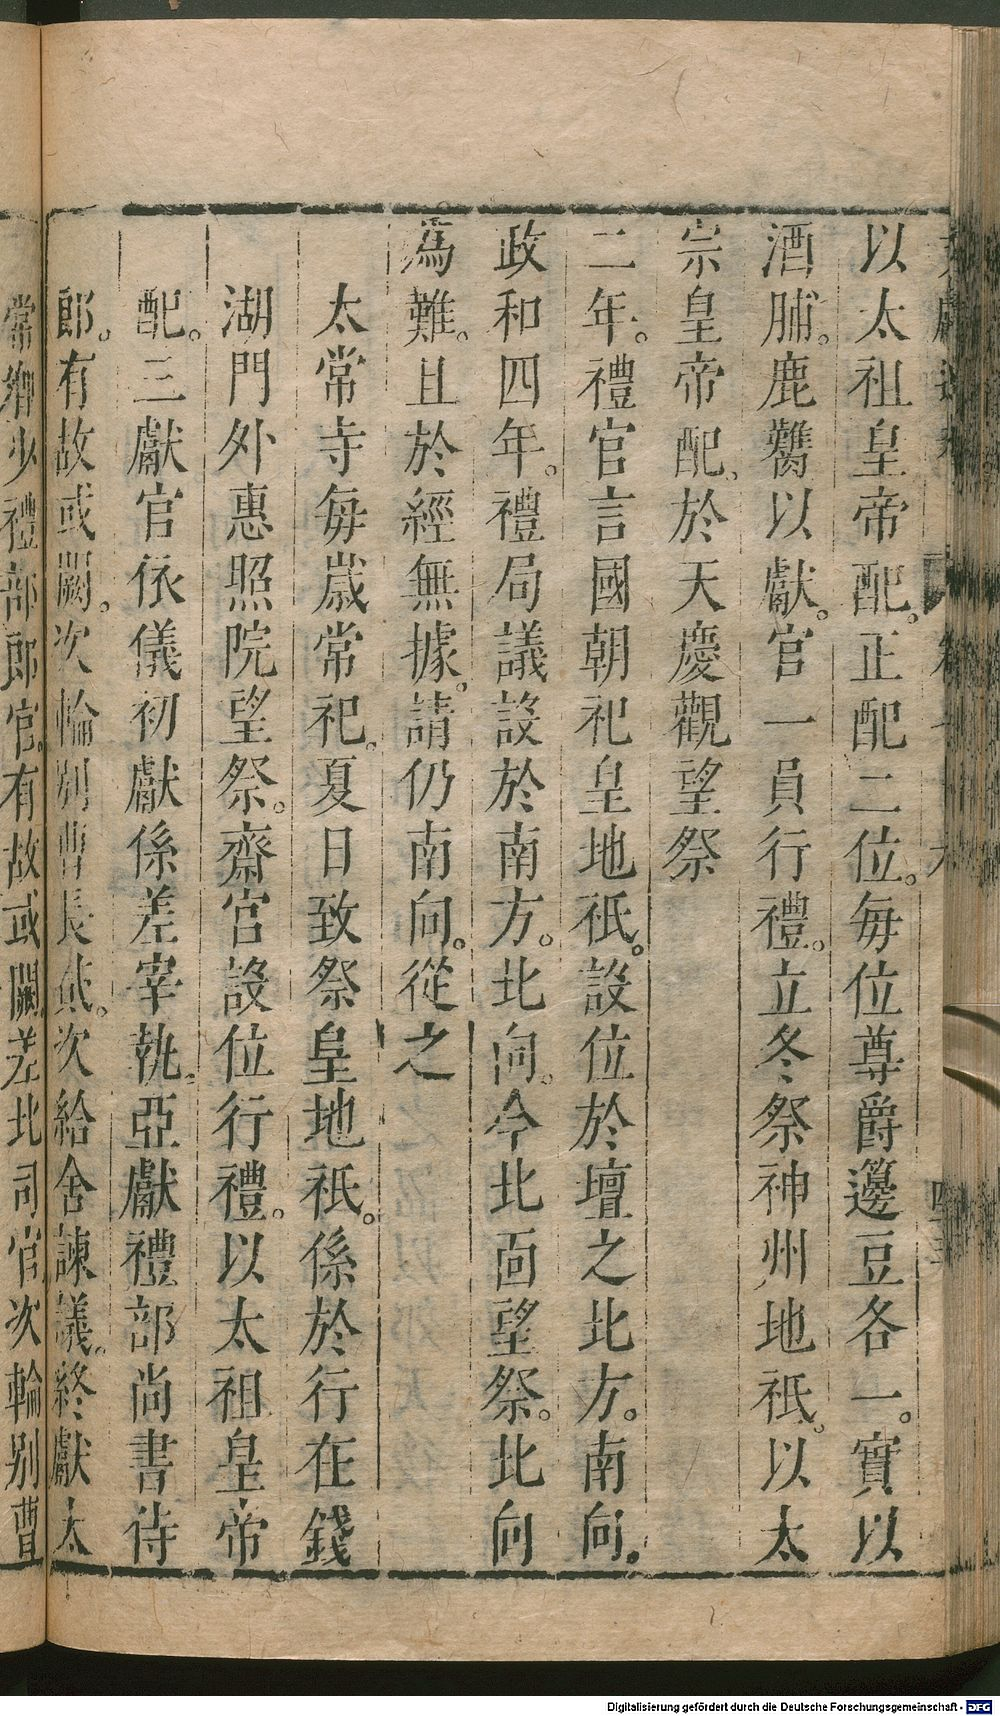 以太祖皇帝配。正配二位。每位尊爵籩豆各一。實以
酒脯。鹿臡以獻。官一員行禮。立冬祭神州地祇。以太
宗皇帝配。於天慶觀望祭
二年。禮官言國朝祀皇地祇。設位於壇之北方。南向。
政和四年。禮局議設於南方。北向。今北面望祭。北向
爲難。且於經無據。請仍南向。從之
太常寺每歲常祀。夏日致祭皇地祇。係於行在錢
湖門外惠照院望祭。齋宮設位行禮。以太祖皇帝
配。三獻官依儀初獻係差宰執。亞獻禮部尚書侍
郎。有故或闕。次輪別曹長貳。次給舍諫議。終獻太
常卿少禮部郎官。有故或闕。差北司官。次輪別曹
Digitalisierung gefördert durch die Deutsche Forschungsgemeinschaft - DFG